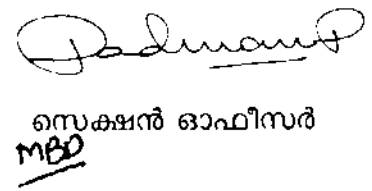 Padmam P
സെക്ഷൻ ഓഫീസർ
MBD